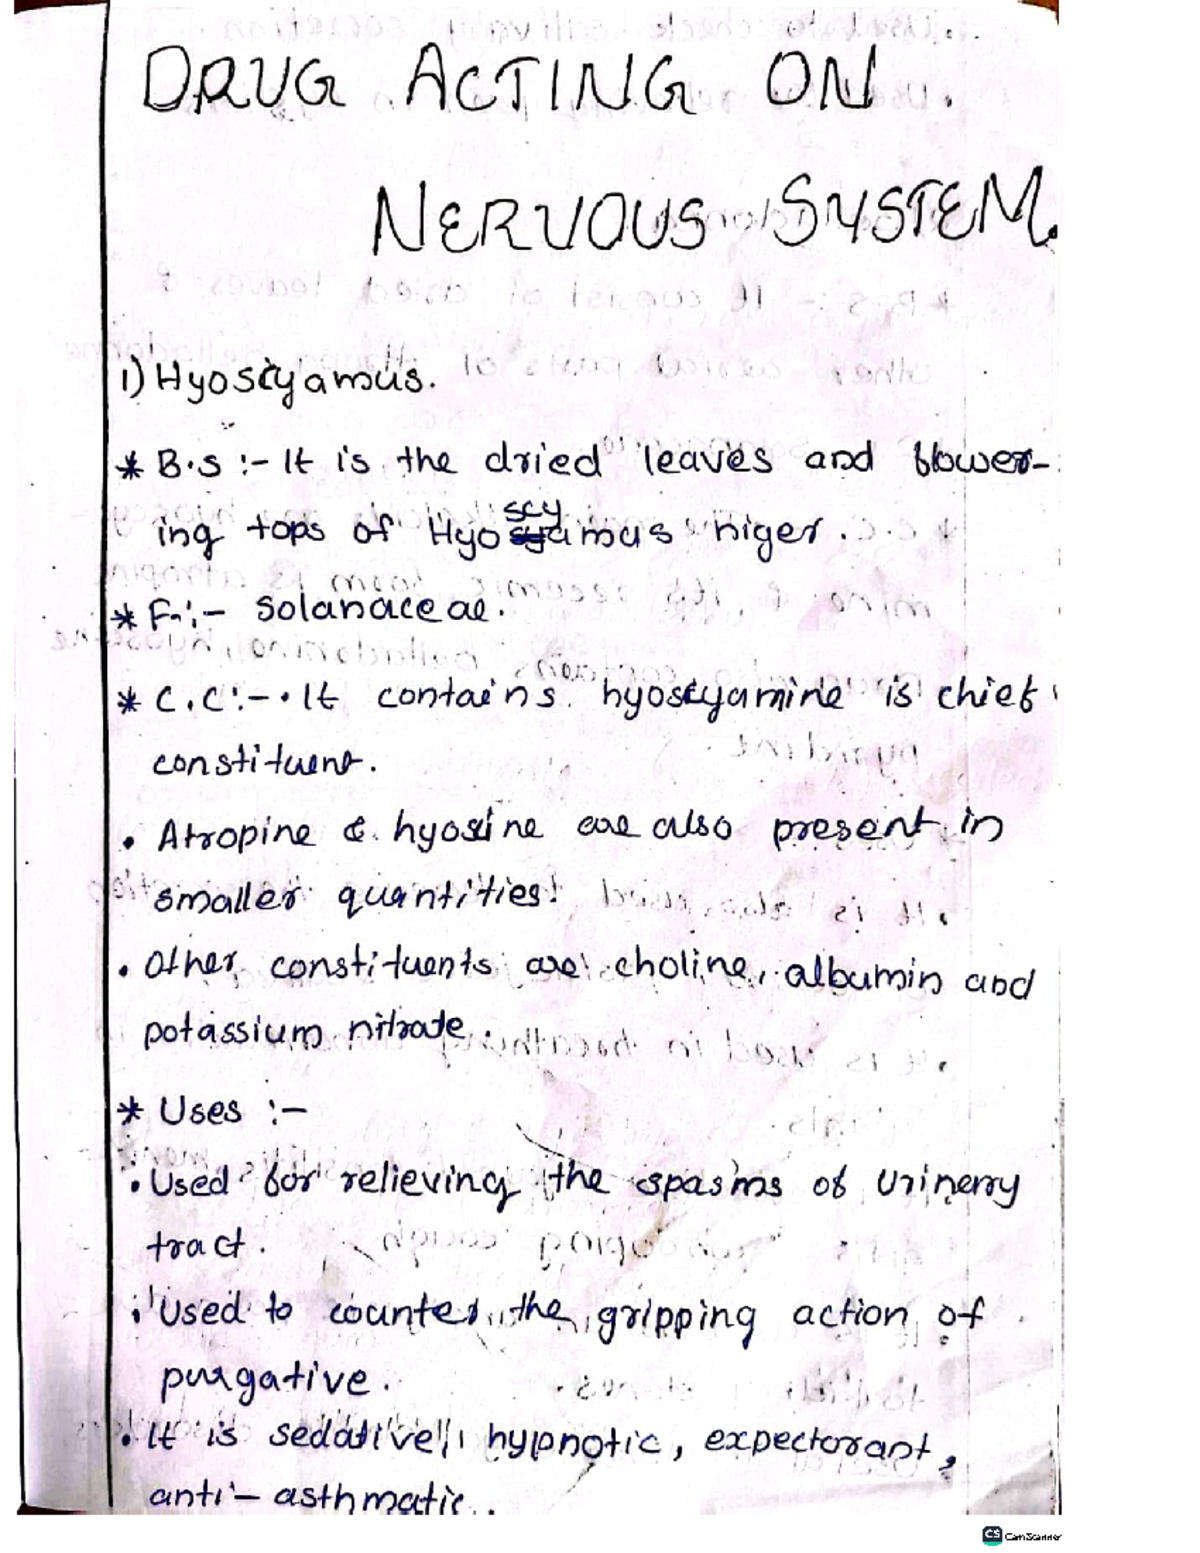 DRUG ACTING ON.
NERVOUS SYSTEM.
1) Hyoscyamus.
* B.S :- It is the dried leaves and flower-
ing tops of Hyoscyamus niger.
* F. :- Solanaceae.
* C.C :- • It contains hyoscyamine is chief
constituent.
• Atropine & hyosine are also present in
smaller quantities.
• Other constituents are choline, albumin and
potassium nitrate.
* Uses :-
• Used for relieving the spasms of Urinerry
tract.
• Used to counter the gripping action of
purgative.
• It is sedative, hypnotic, expectorant,
anti - asthmatic.
CS CamScanner